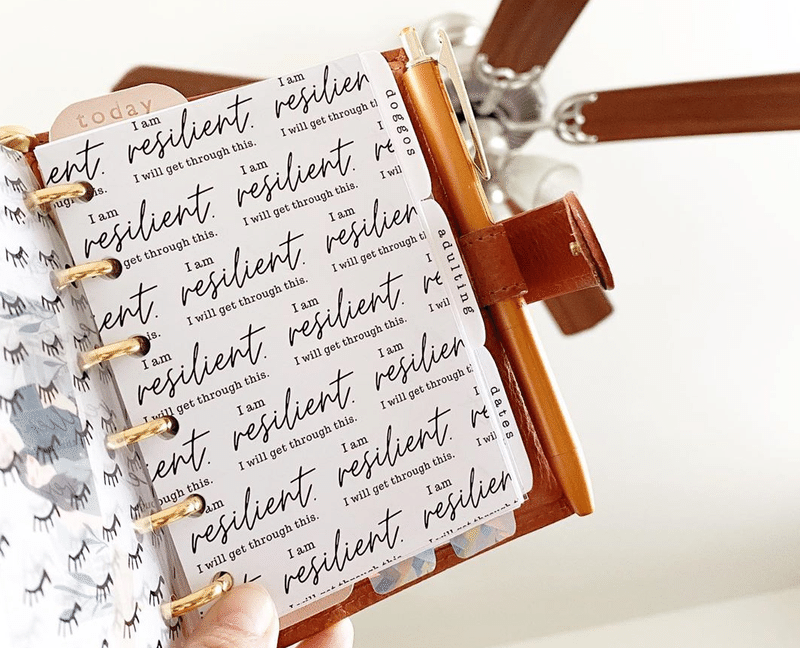 today
I am
I am
ent. resilient. resilien
ugh this. I will get through this. I will get through t
I am
I am
resilient. resilient. re
get through this. I will get through this. I wil
I am
I am
ent. resilient. resilien
is. I will get through this. I will get through t
I am
I am
resilient. resilient. re
I will get through this. I will get through this. I wil
I am
I am
ent. resilient. resilien
ough this. I will get through this. I will get through t
am
I am
resilient. resilient. re
I will get through this. I will get through this. I wi
I am
I am
resilient. resilien
doggos
adulting
dates